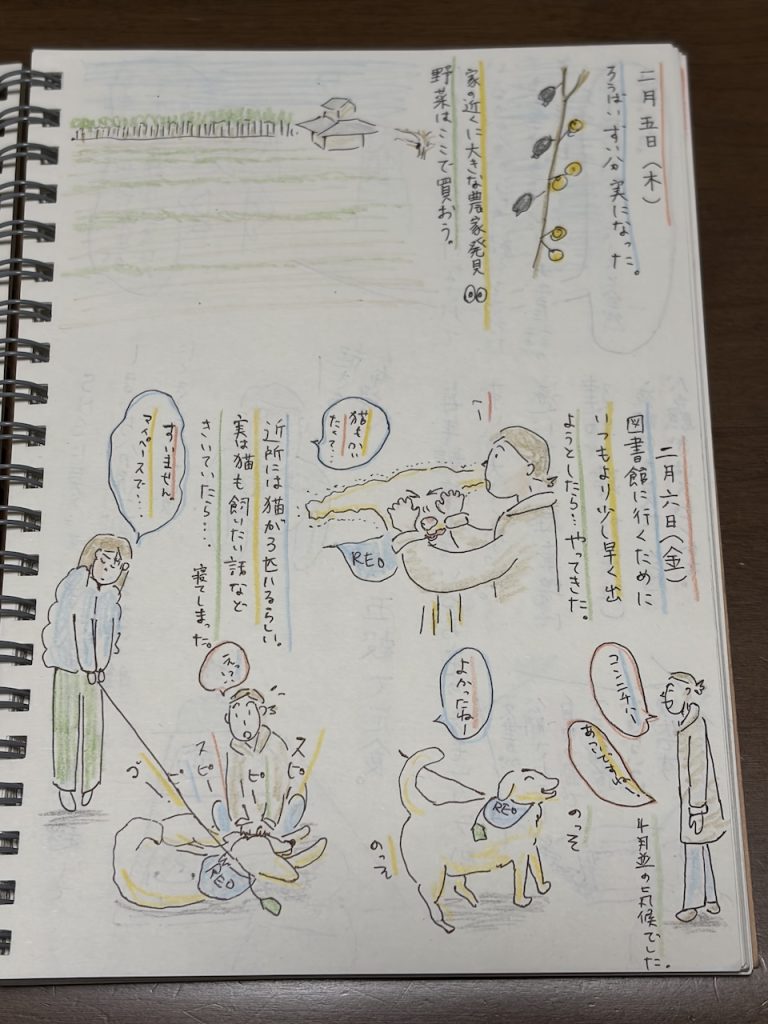 二月五日(木)
ろうばいずい分実になった。
家の近くに大きな農家発見
野菜はここで買おう。
二月六日(金)
図書館に行くために
いつもより少し早く出
ようとしたら…やってきた。
コンニチハー
4月並の気候でした。
REO
よかったねー
のっそ
のっそ
REO
猫もかい
たくて…
近所には猫が3匹いるらしい。
実は猫も飼いたい話など
きいていたら…、寝てしまった。
えっ!?
スピー
ピー
スピー
REO
すいません
マイペースで…